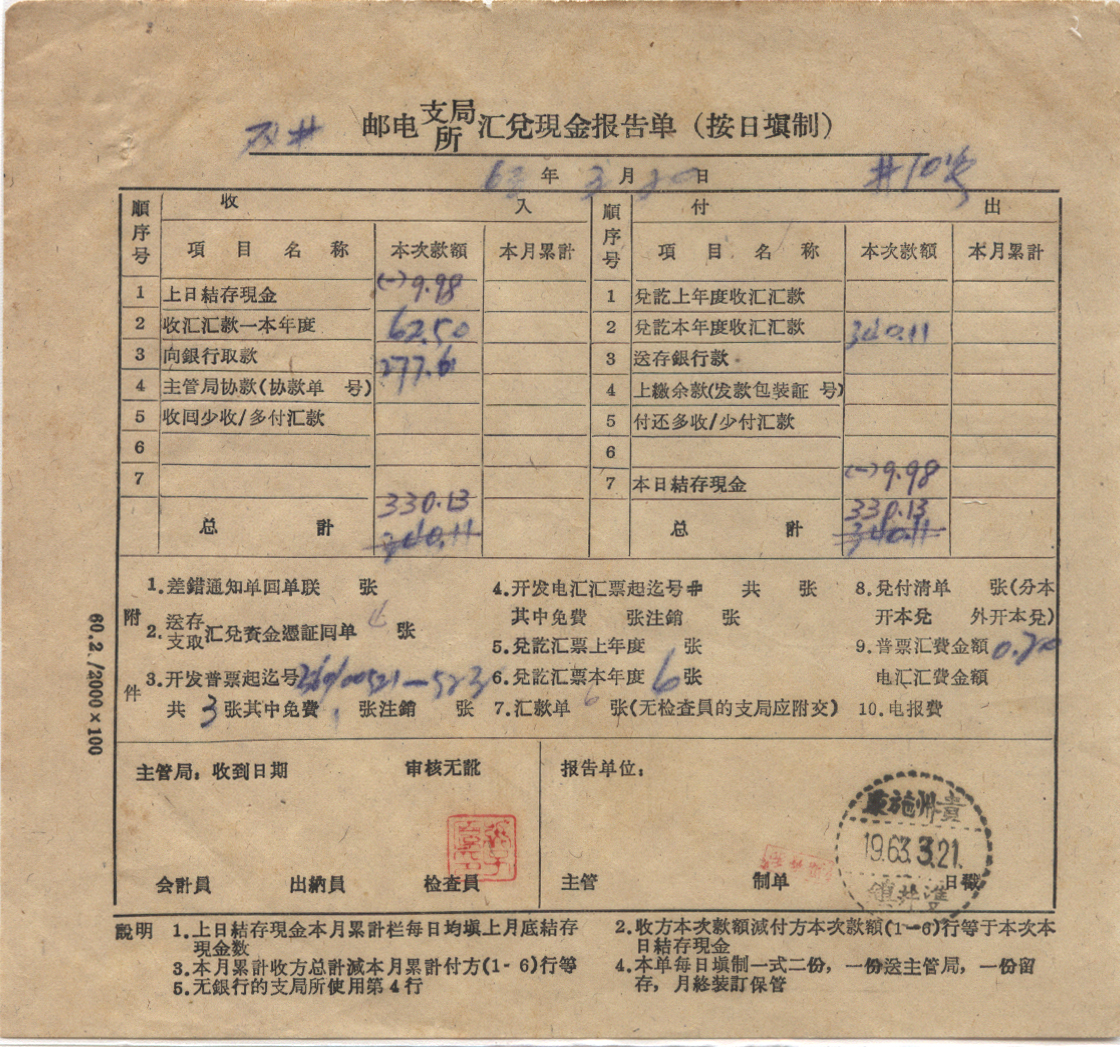 双井 邮电支局所汇兌現金报告单（按日填制）
63年3月20日 #10次
順序号 收入 順序号 付出
項目名称 本次款額 本月累計 項目名称 本次款額 本月累計
1 上日結存現金 (-)9.98 1 兌訖上年度收汇汇款
2 收汇汇款一本年度 62.50 2 兌訖本年度收汇汇款 340.11
3 向銀行取款 277.61 3 送存銀行款
4 主管局协款(协款单 号) 4 上繳余款(发款包装証 号)
5 收囘少收/多付汇款 5 付还多收/少付汇款
6 6
7 7 本日結存現金 (-)9.98
总計 330.13 总計 330.13
340.11 340.11
附件
1.差錯通知单回单联 张 4.开发电汇汇票起迄号# 共 张 8.兌付清单 张(分本
其中免費 张注銷 张 开本兌 外开本兌)
2.送存支取汇兌資金憑証囘单 张 5.兌訖汇票上年度 张 9.普票汇費金額 0.20
3.开发普票起迄号 00521-523 6.兌訖汇票本年度 6张 电汇汇費金額
共3张其中免費1张注銷 张 7.汇款单 6 张(无检查員的支局应附交) 10.电报費
60.2./2000×100
主管局：收到日期 审核无訛 报告单位：
会計員 出納員 检查員 主管 制单 日戳
貴州施秉
1963.3.21.
双井鎮
說明 1.上日結存現金本月累計栏每日均填上月底結存現金数
2.收方本次款額減付方本次款額(1-6)行等于本次本日結存現金
3.本月累計收方总計減本月累計付方(1-6)行等
4.本单每日填制一式二份，一份送主管局，一份留存，月終装訂保管
5.无銀行的支局所使用第4行